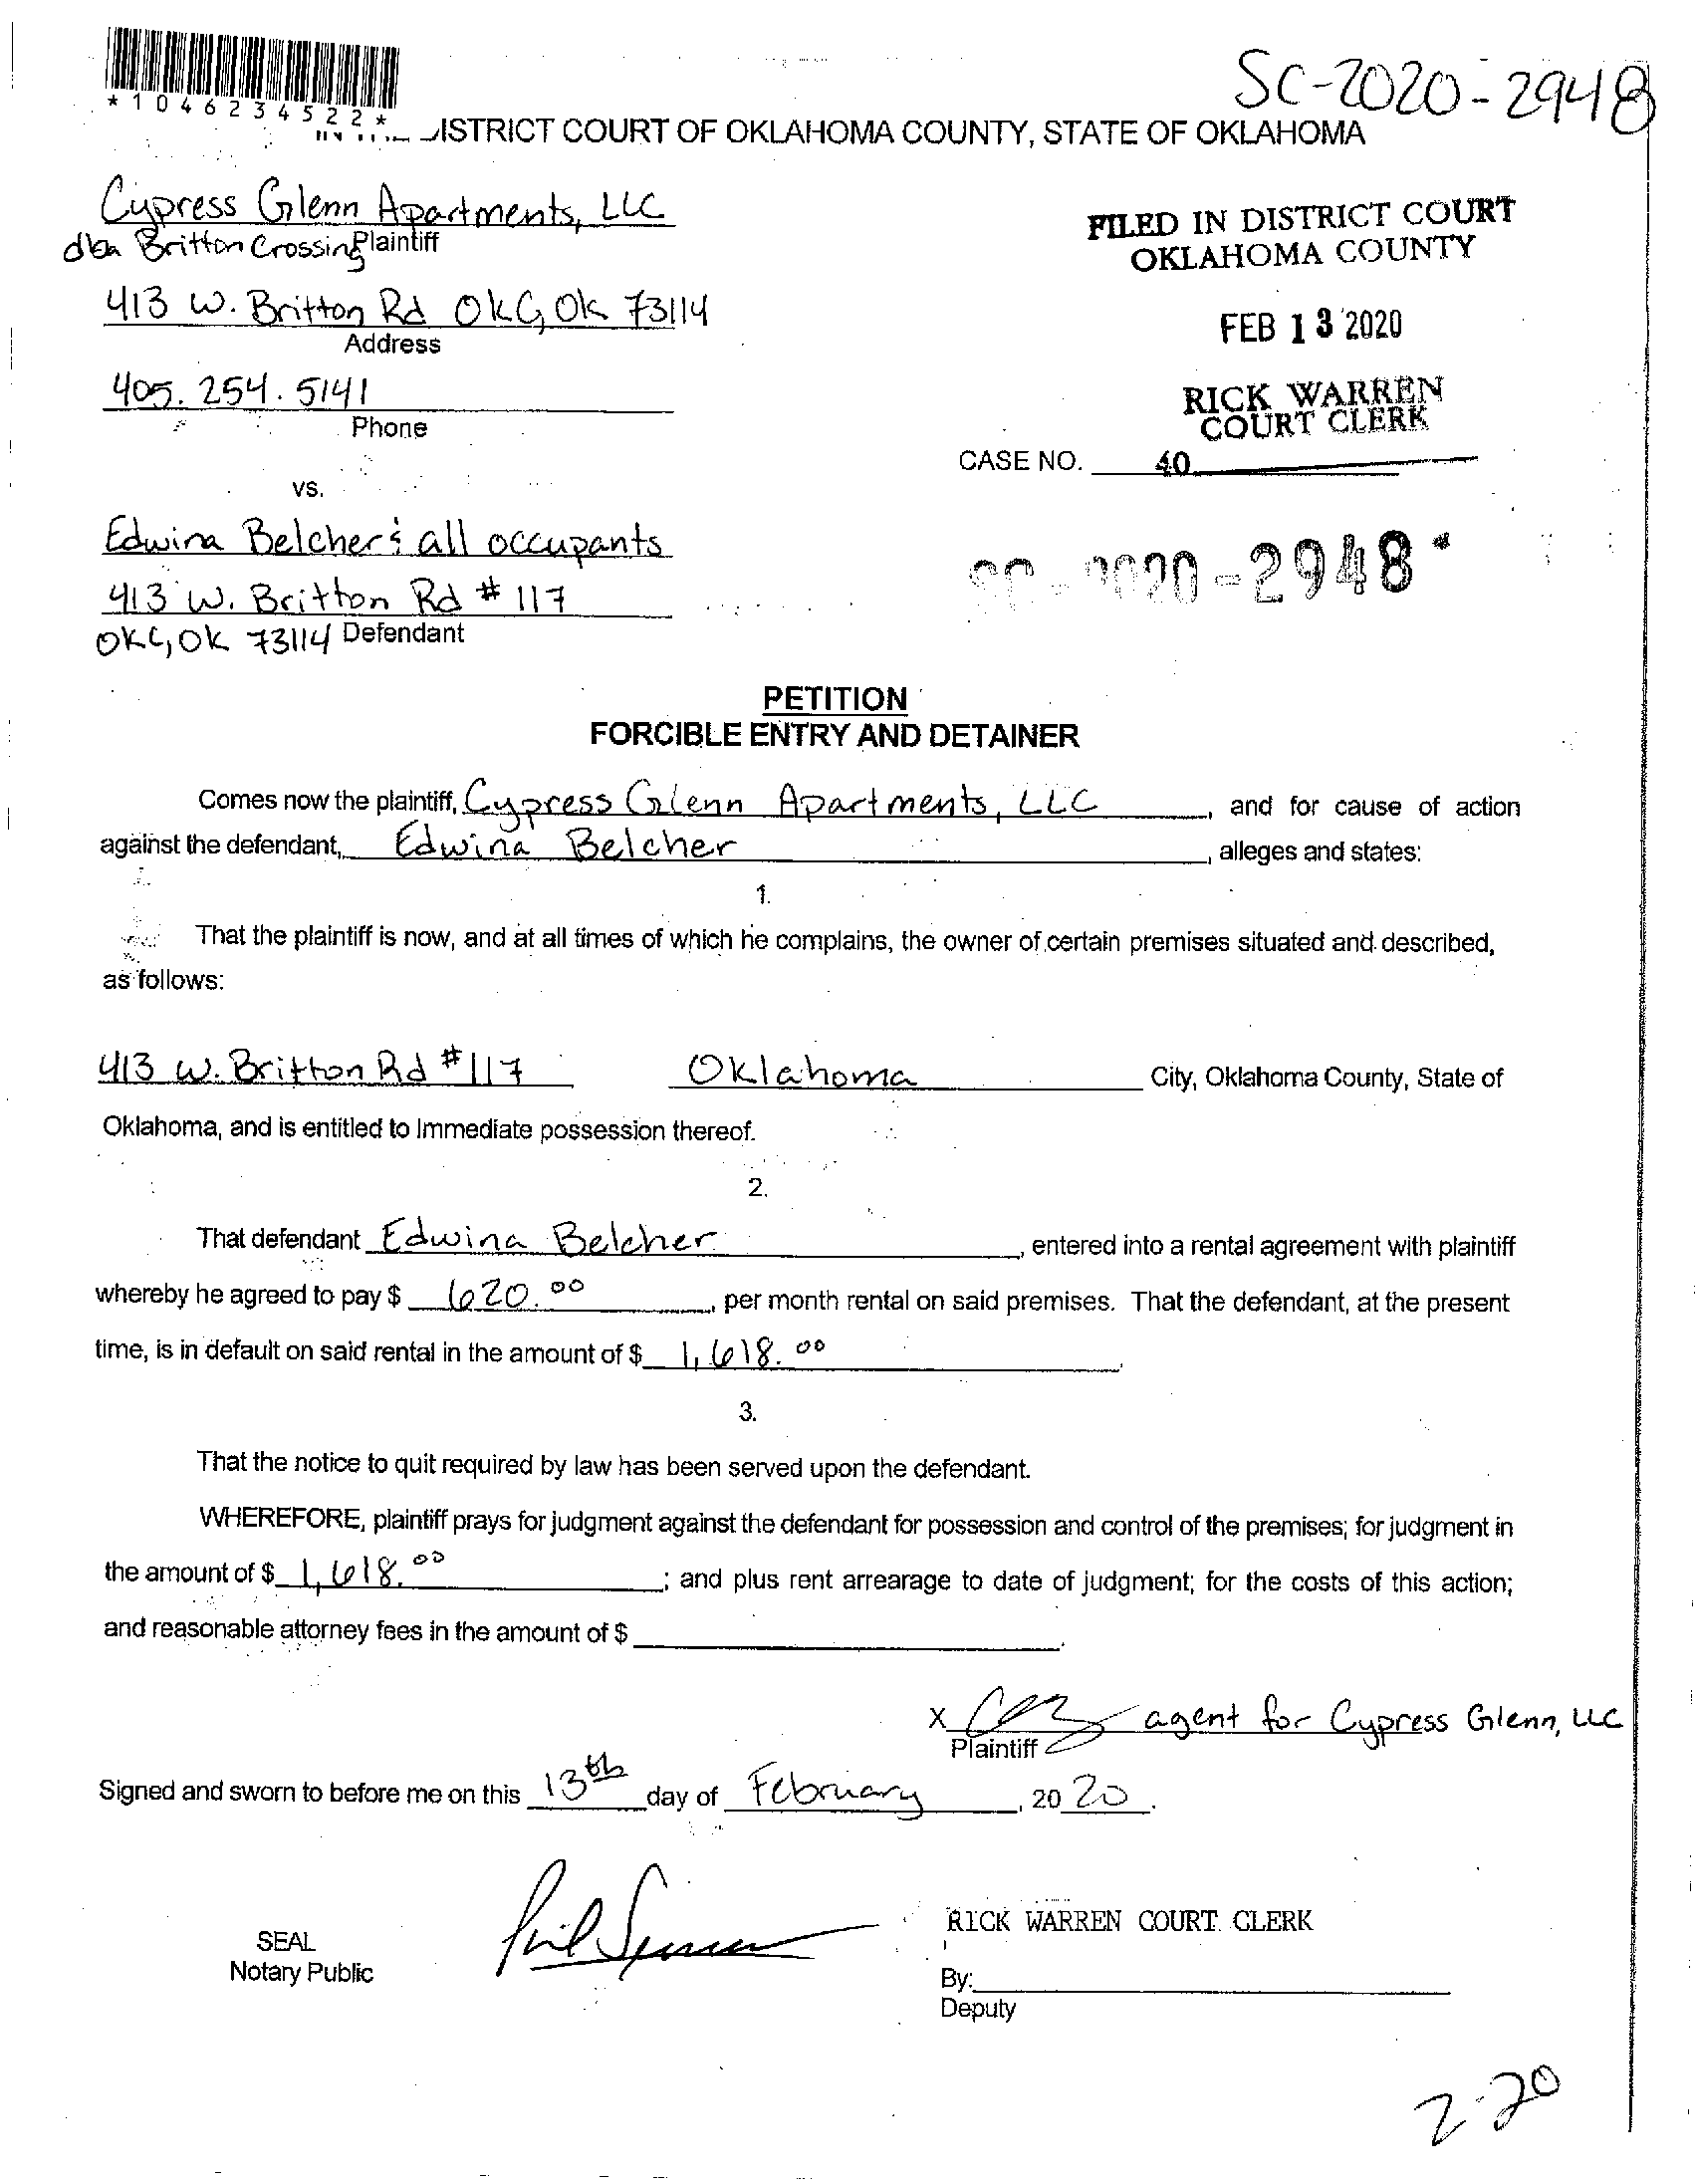 SC-2020-2948
*1046234522*
DISTRICT COURT OF OKLAHOMA COUNTY, STATE OF OKLAHOMA
Cypress Glenn Apartments, LLC
dba Britton Crossing Plaintiff
413 W. Britton Rd OKC, OK 73114
Address
405. 254. 5141
Phone
FILED IN DISTRICT COURT
OKLAHOMA COUNTY
FEB 13 2020
RICK WARREN
COURT CLERK
CASE NO. 40
vs.
Edwina Belcher & all occupants
413 W. Britton Rd # 117
OKC, OK 73114 Defendant
SC-2020-2948
PETITION
FORCIBLE ENTRY AND DETAINER
Comes now the plaintiff, Cypress Glenn Apartments, LLC, and for cause of action
against the defendant, Edwina Belcher, alleges and states:
1.
That the plaintiff is now, and at all times of which he complains, the owner of certain premises situated and described,
as follows:
413 W. Britton Rd #117 Oklahoma City, Oklahoma County, State of
Oklahoma, and is entitled to Immediate possession thereof.
2.
That defendant Edwina Belcher, entered into a rental agreement with plaintiff
whereby he agreed to pay $ 620.00, per month rental on said premises. That the defendant, at the present
time, is in default on said rental in the amount of $ 1,618.00.
3.
That the notice to quit required by law has been served upon the defendant.
WHEREFORE, plaintiff prays for judgment against the defendant for possession and control of the premises; for judgment in
the amount of $ 1,618.00; and plus rent arrearage to date of judgment; for the costs of this action;
and reasonable attorney fees in the amount of $
X agent for Cypress Glenn, LLC
Plaintiff
Signed and sworn to before me on this 13th day of February, 2020.
SEAL
Notary Public
RICK WARREN COURT CLERK
By:
Deputy
2-20